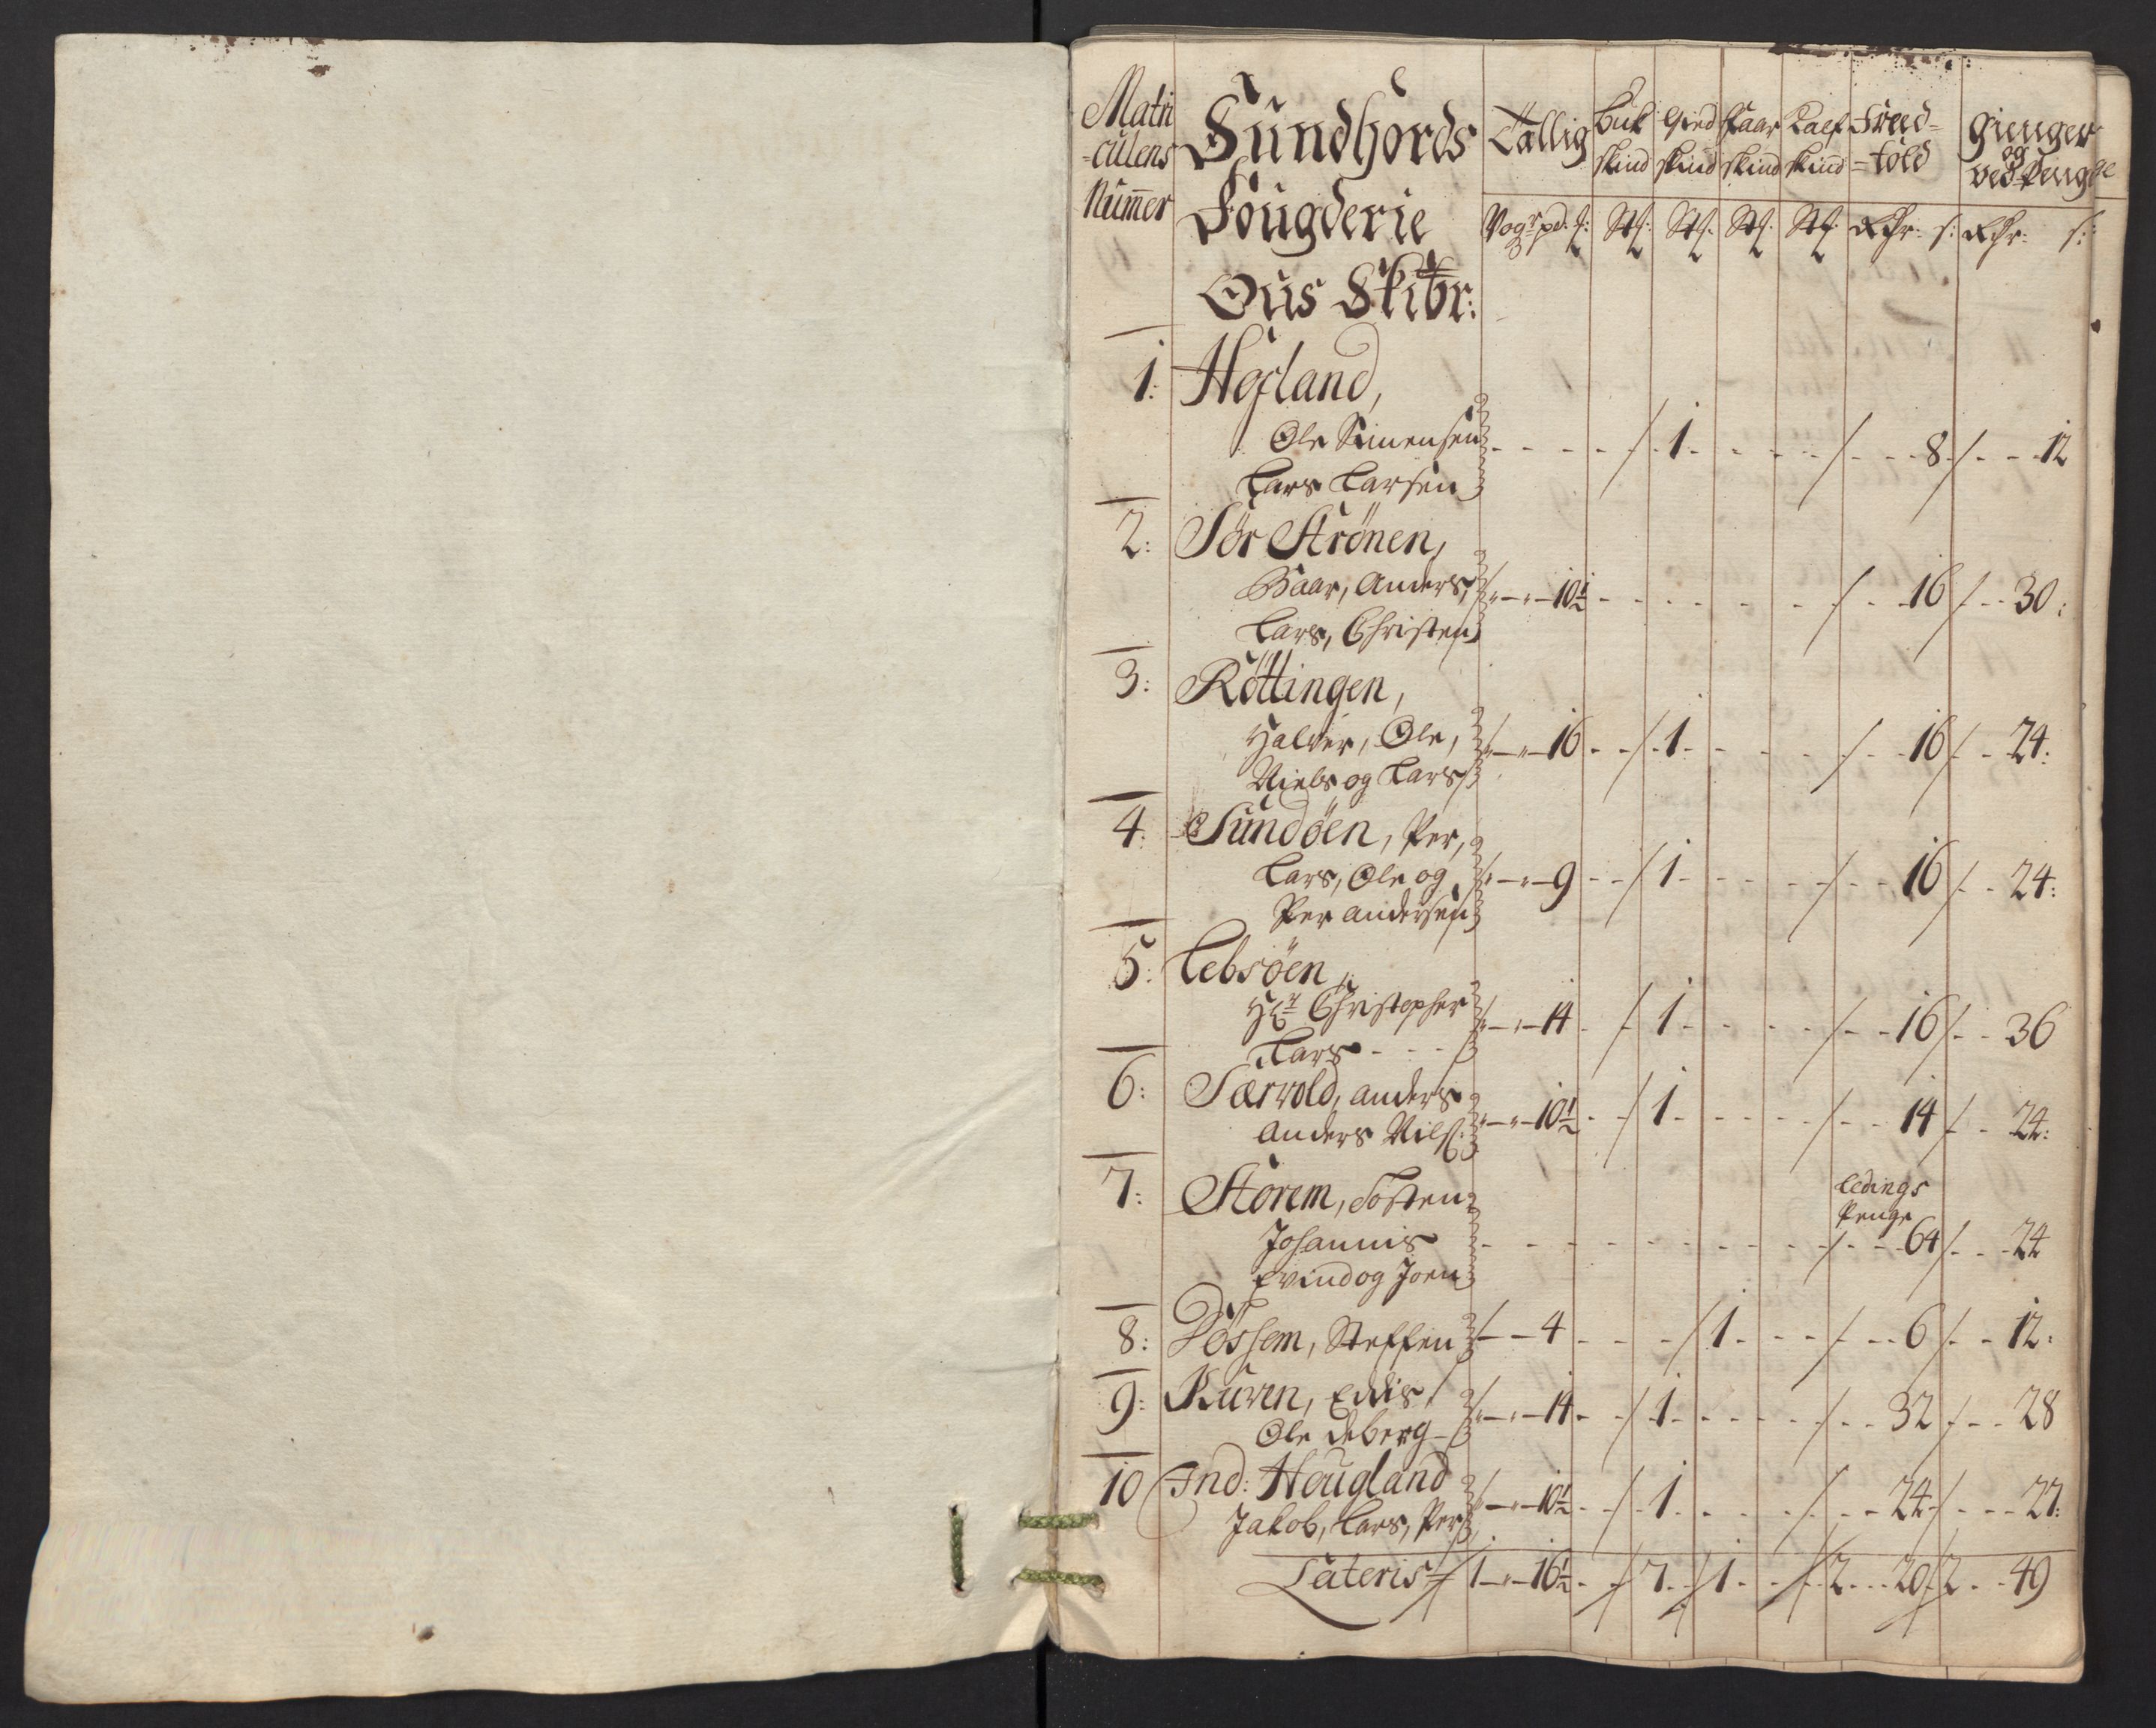 Matri
=culens
Nummer
Sundhords
Fougderie
Ous Skibr:
Tallig
Buk
skind
Gied
skind
Faar
skind
Kalf
skind
Fred=
=told
Gienger
og
Ved Penge
Vogr pd: Rdr: s: Rdr: s:
1: Hegland,
Ole Simensen
Lars Larsen
1 8 12
2: Sør Strønen,
Baar, Anders,
Lars, Christen
10½ 16 30:
3: Røttingen,
Halver, Ole,
Niels og Lars
16 1 16 24:
4: Sundøen, Per,
Lars, Ole og
Per Andersen
9 1 16 24:
5: Lebsøen,
Christopher
Lars
14 1 16 36
6: Særvold, Anders
Anders Nilss:
10½ 1 14 24:
7: Storem, Tosten
Johannis
Evind og Joen
Ledings
Penge
64 24
8: Døssem, Steffen
4 1 6 12:
9: Kuven,
Ole
14 1 32 28
10 Ind: Hougland
Jakob, Lars, Per
10½ 1 24 27:
Lateris 1 16½ 7 1 2 20 2 49